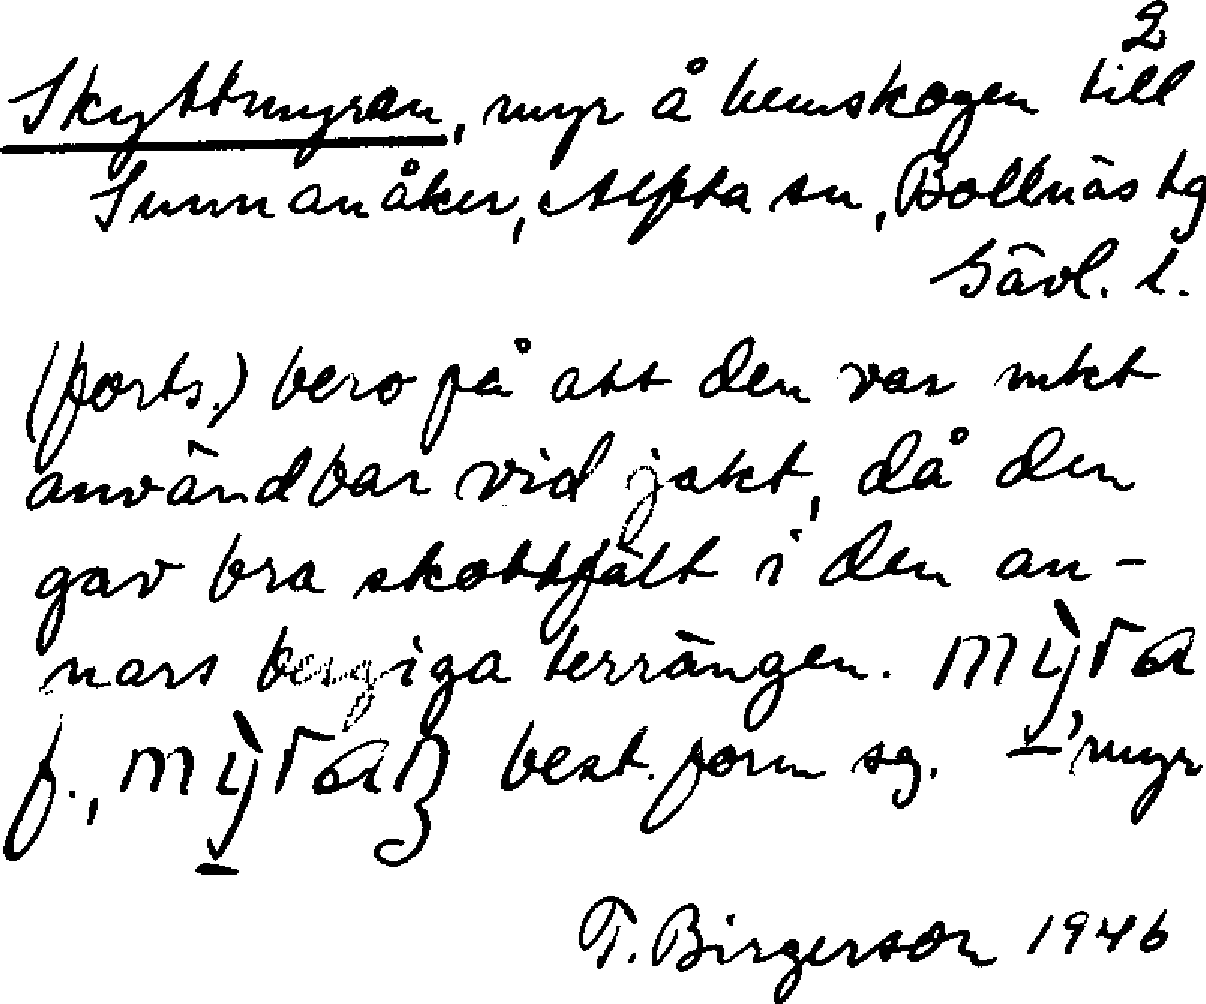 2
Skyttmyran, myr å hemskogen till
Sunnanåker, Alfta sn, Bollnäs tg
Gävl. l.
(forts.) bero på att den var mkt
användbar vid jakt, då den
gav bra skottfält i den an-
nars bergiga terrängen. mỳra
f., best. form sg. — 'myr
T. Birgerson 1946